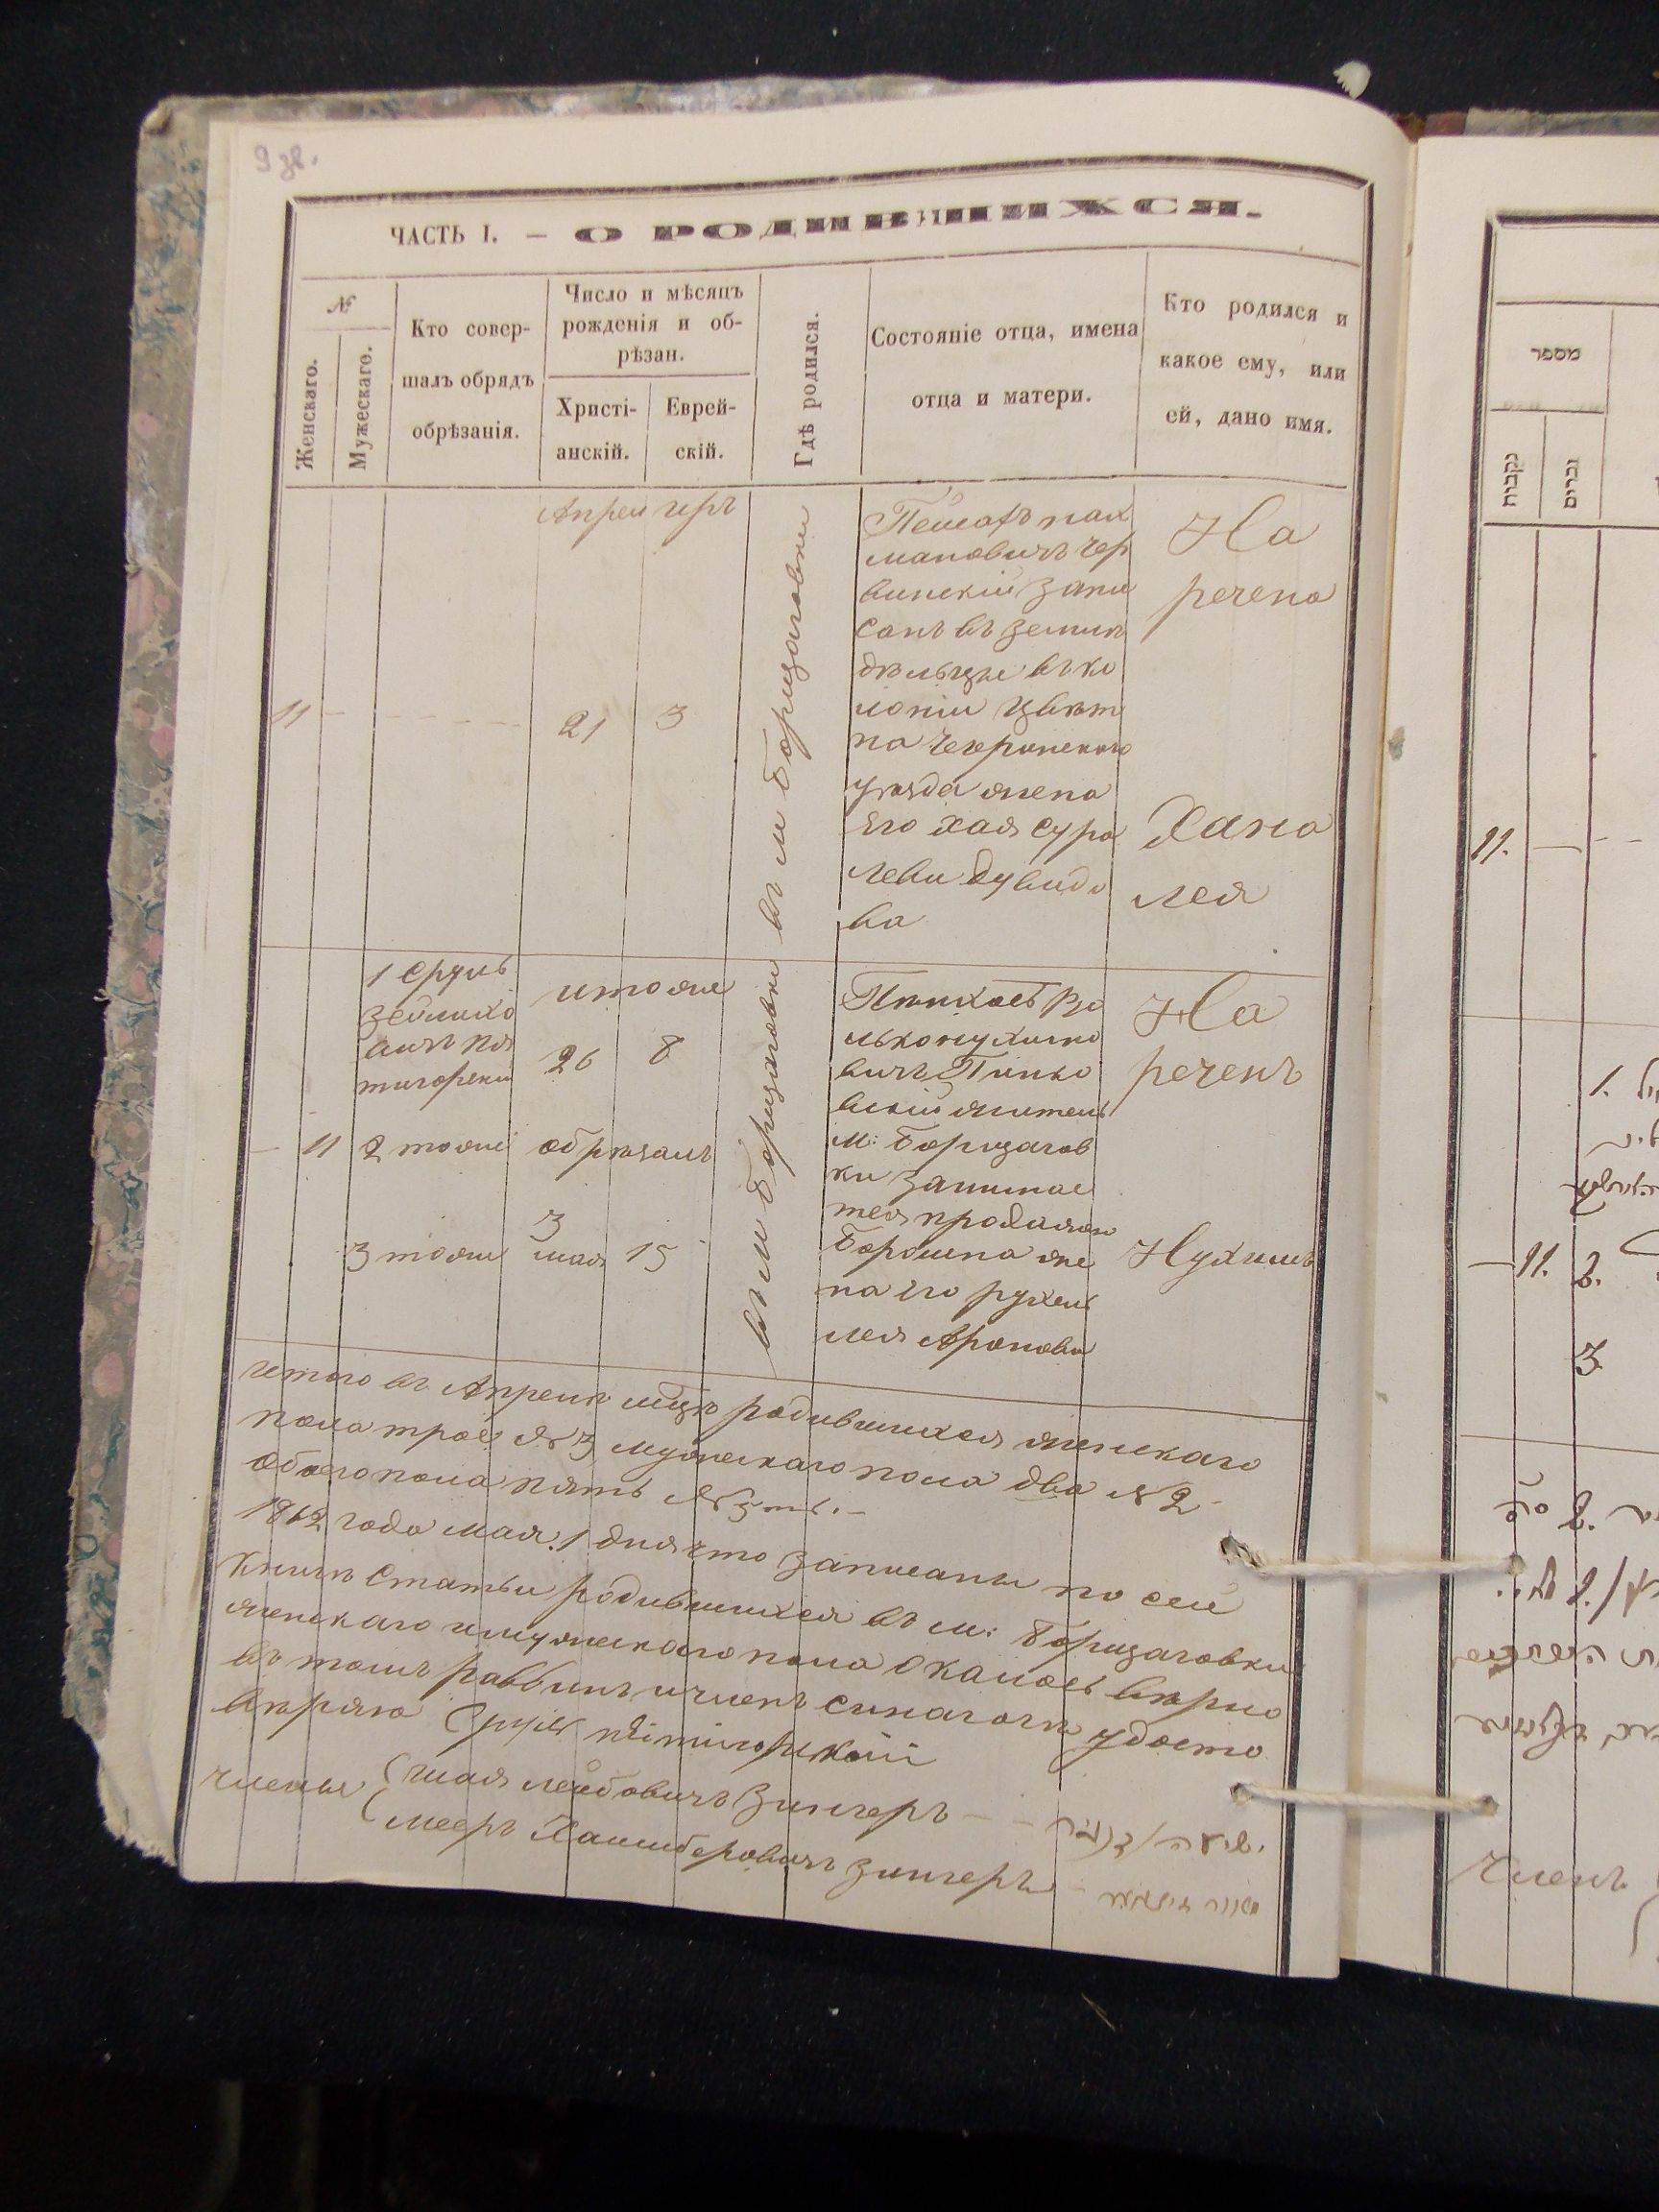 9 зв.
ЧАСТЬ I. — О РОДИВШИХСЯ.
№
Женскаго.
Мужескаго.
Кто совер-
шалъ обрядъ
обрѣзанія.
Число и мѣсяцъ
рожденія и об-
рѣзан.
Христі-
анскій.
Еврей-
скій.
Гдѣ родился.
Состояніе отца, имена
отца и матери.
Кто родился и
какое ему, или
ей, дано имя.
Апрел
11 — 21 3
въ м Борщаговки
мановичъ чер
винскій запи
санъ въ земле
дельцы въ ко
лоніи Цвѣт
на Чегринского
уѣзда жена
его хая сура
леви дувидо
ва
На
речена
Хана
лея
1 Сруль
зейлико
вичъ пя
тигорски
2 тоже
3 тоже
итоже
26 8
обрѣзанъ
3
мая 15
— 11
въ м Борщаговки
Пинхасъ
вичъ Пинко
вскій житель
м: Борщагов
ки занимае
тся продажею
борошна же
на его рухель
лея Аронова
На
реченъ
Нухимъ
Четого въ Апреле мцѣ родившихся женскаго
пола трое № 3 мужескаго пола два № 2
обоего пола пять № 5ть. —
1862 года мая 1 дня что записаны по сей
книге статьи родившихся въ м: Борщаговки
женскаго и мужескаго пола оказось верно
въ томъ раввинъ и членъ синагоги удосто
веряю Сруль пятигорский
члены шая лейбовичъ Зингеръ —
мееръ Хаимберовичъ зингеръ
מספר
נקבות
זכרים
11. —
1.
— 11. 2.
3.
Членъ